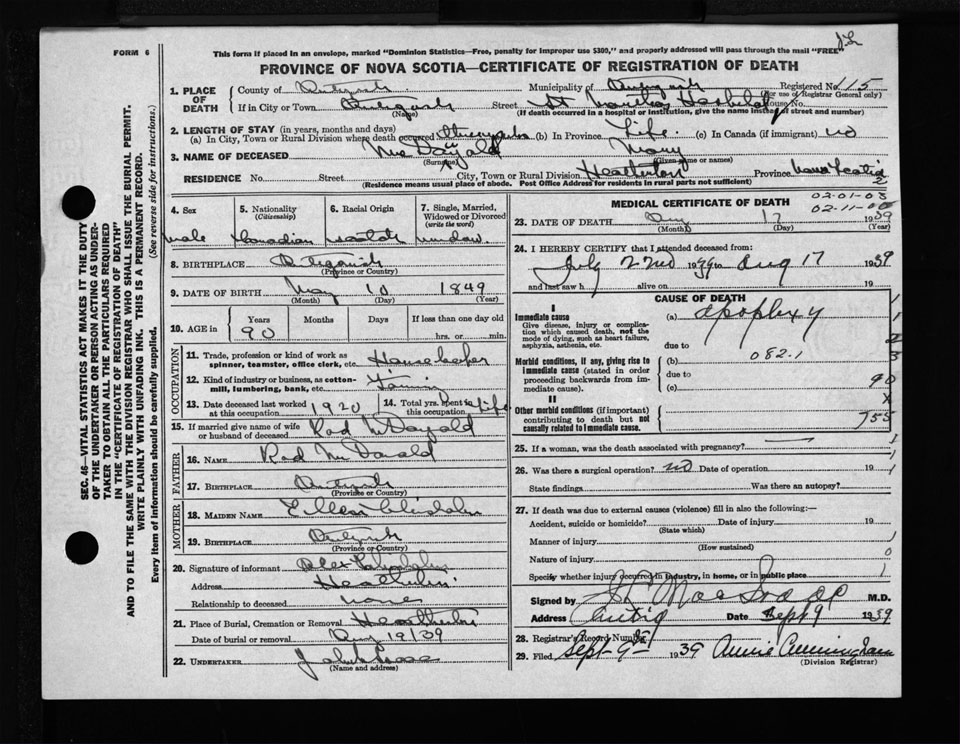 FORM 6
This form if placed in an envelope, marked "Dominion Statistics—Free, penalty for improper use $300," and properly addressed will pass through the mail "FREE"
PROVINCE OF NOVA SCOTIA—CERTIFICATE OF REGISTRATION OF DEATH
1. PLACE OF DEATH
County of Antigonish Municipality of Antigonish Registered No. 115
(For use of Registrar General only)
If in City or Town Antigonish Street St House No.
(Name) (If death occurred in a hospital or institution, give the name instead of street and number)
2. LENGTH OF STAY (in years, months and days)
(a) In City, Town or Rural Division where death occurred (b) In Province Life (c) In Canada (if immigrant) no
3. NAME OF DECEASED Mary
(Surname) (Given name or names)
RESIDENCE No. Street City, Town or Rural Division Heatherton Province Nova Scotia
(Residence means usual place of abode. Post Office Address for residents in rural parts not sufficient) 2
SEC. 46—VITAL STATISTICS ACT MAKES IT THE DUTY
OF THE UNDERTAKER OR PERSON ACTING AS UNDER-
TAKER TO OBTAIN ALL THE PARTICULARS REQUIRED
IN THE "CERTIFICATE OF REGISTRATION OF DEATH"
AND TO FILE THE SAME WITH THE DIVISION REGISTRAR WHO SHALL ISSUE THE BURIAL PERMIT.
WRITE PLAINLY WITH UNFADING INK. THIS IS A PERMANENT RECORD.
Every item of Information should be carefully supplied. (See reverse side for instructions.)
4. Sex
5. Nationality (Citizenship) Canadian
6. Racial Origin
7. Single, Married, Widowed or Divorced (write the word)
8. BIRTHPLACE Antigonish
(Province or Country)
9. DATE OF BIRTH May 10 1849
(Month) (Day) (Year)
10. AGE in Years Months Days If less than one day old
90 hrs. or min.
OCCUPATION
11. Trade, profession or kind of work as spinner, teamster, office clerk, etc. Housekeeper
12. Kind of industry or business, as cotton-mill, lumbering, bank, etc.
13. Date deceased last worked at this occupation 1920
14. Total yrs. spent in this occupation Life
15. If married give name of wife or husband of deceased Rod
FATHER
16. NAME Rod McDonald
17. BIRTHPLACE Antigonish
(Province or Country)
MOTHER
18. MAIDEN NAME Chisholm
19. BIRTHPLACE Antigonish
(Province or Country)
20. Signature of informant Alex
Address Heatherton
Relationship to deceased none
21. Place of Burial, Cremation or Removal Heatherton
Date of burial or removal Aug 19/39
22. UNDERTAKER John
(Name and address)
MEDICAL CERTIFICATE OF DEATH 02-01-03
02-11-00
23. DATE OF DEATH Aug 17 1939
(Month) (Day) (Year)
24. I HEREBY CERTIFY that I attended deceased from:
July 22nd 1939 to Aug 17 1939
and last saw h alive on 19
CAUSE OF DEATH
I
Immediate cause (a) apoplexy
Give disease, injury or complication which caused death, not the mode of dying, such as heart failure, asphyxia, asthenia, etc.
due to
Morbid conditions, if any, giving rise to immediate cause (stated in order proceeding backwards from immediate cause).
(b) 082.1
due to
(c)
II
Other morbid conditions (if important) contributing to death but not causally related to immediate cause.
1
1
2
3
90
X
755
25. If a woman, was the death associated with pregnancy?
26. Was there a surgical operation? no Date of operation 19
State findings Was there an autopsy?
27. If death was due to external causes (violence) fill in also the following:—
Accident, suicide or homicide? Date of injury 19
(State which)
Manner of injury
(How sustained)
Nature of injury
Specify whether injury occurred in industry, in home, or in public place
Signed by M.D.
Address Antig Date Sept 9 1939
28. Registrar's Record Number
29. Filed Sept 9 1939 Annie Cunningham
(Division Registrar)